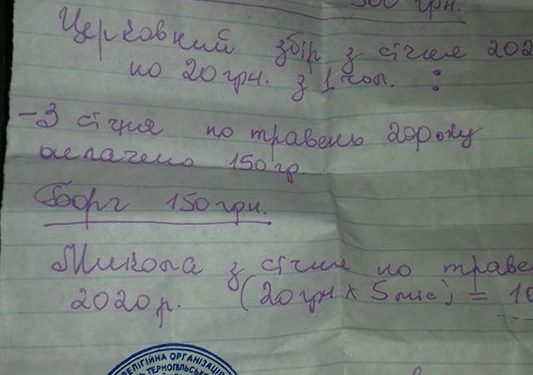 300 грн.
Церковний збір з січня 202
по 20 грн. з 1 чол. :
- З січня по травень 20року
оплачено 150 гр.
Борг 150 грн.
Микола з січня по траве
2020р. (20 грн х 5 міс) = 10
РЕЛІГІЙНА ОРГАНІЗАЦІЯ
ТЕРНОПІЛЬСЬКО